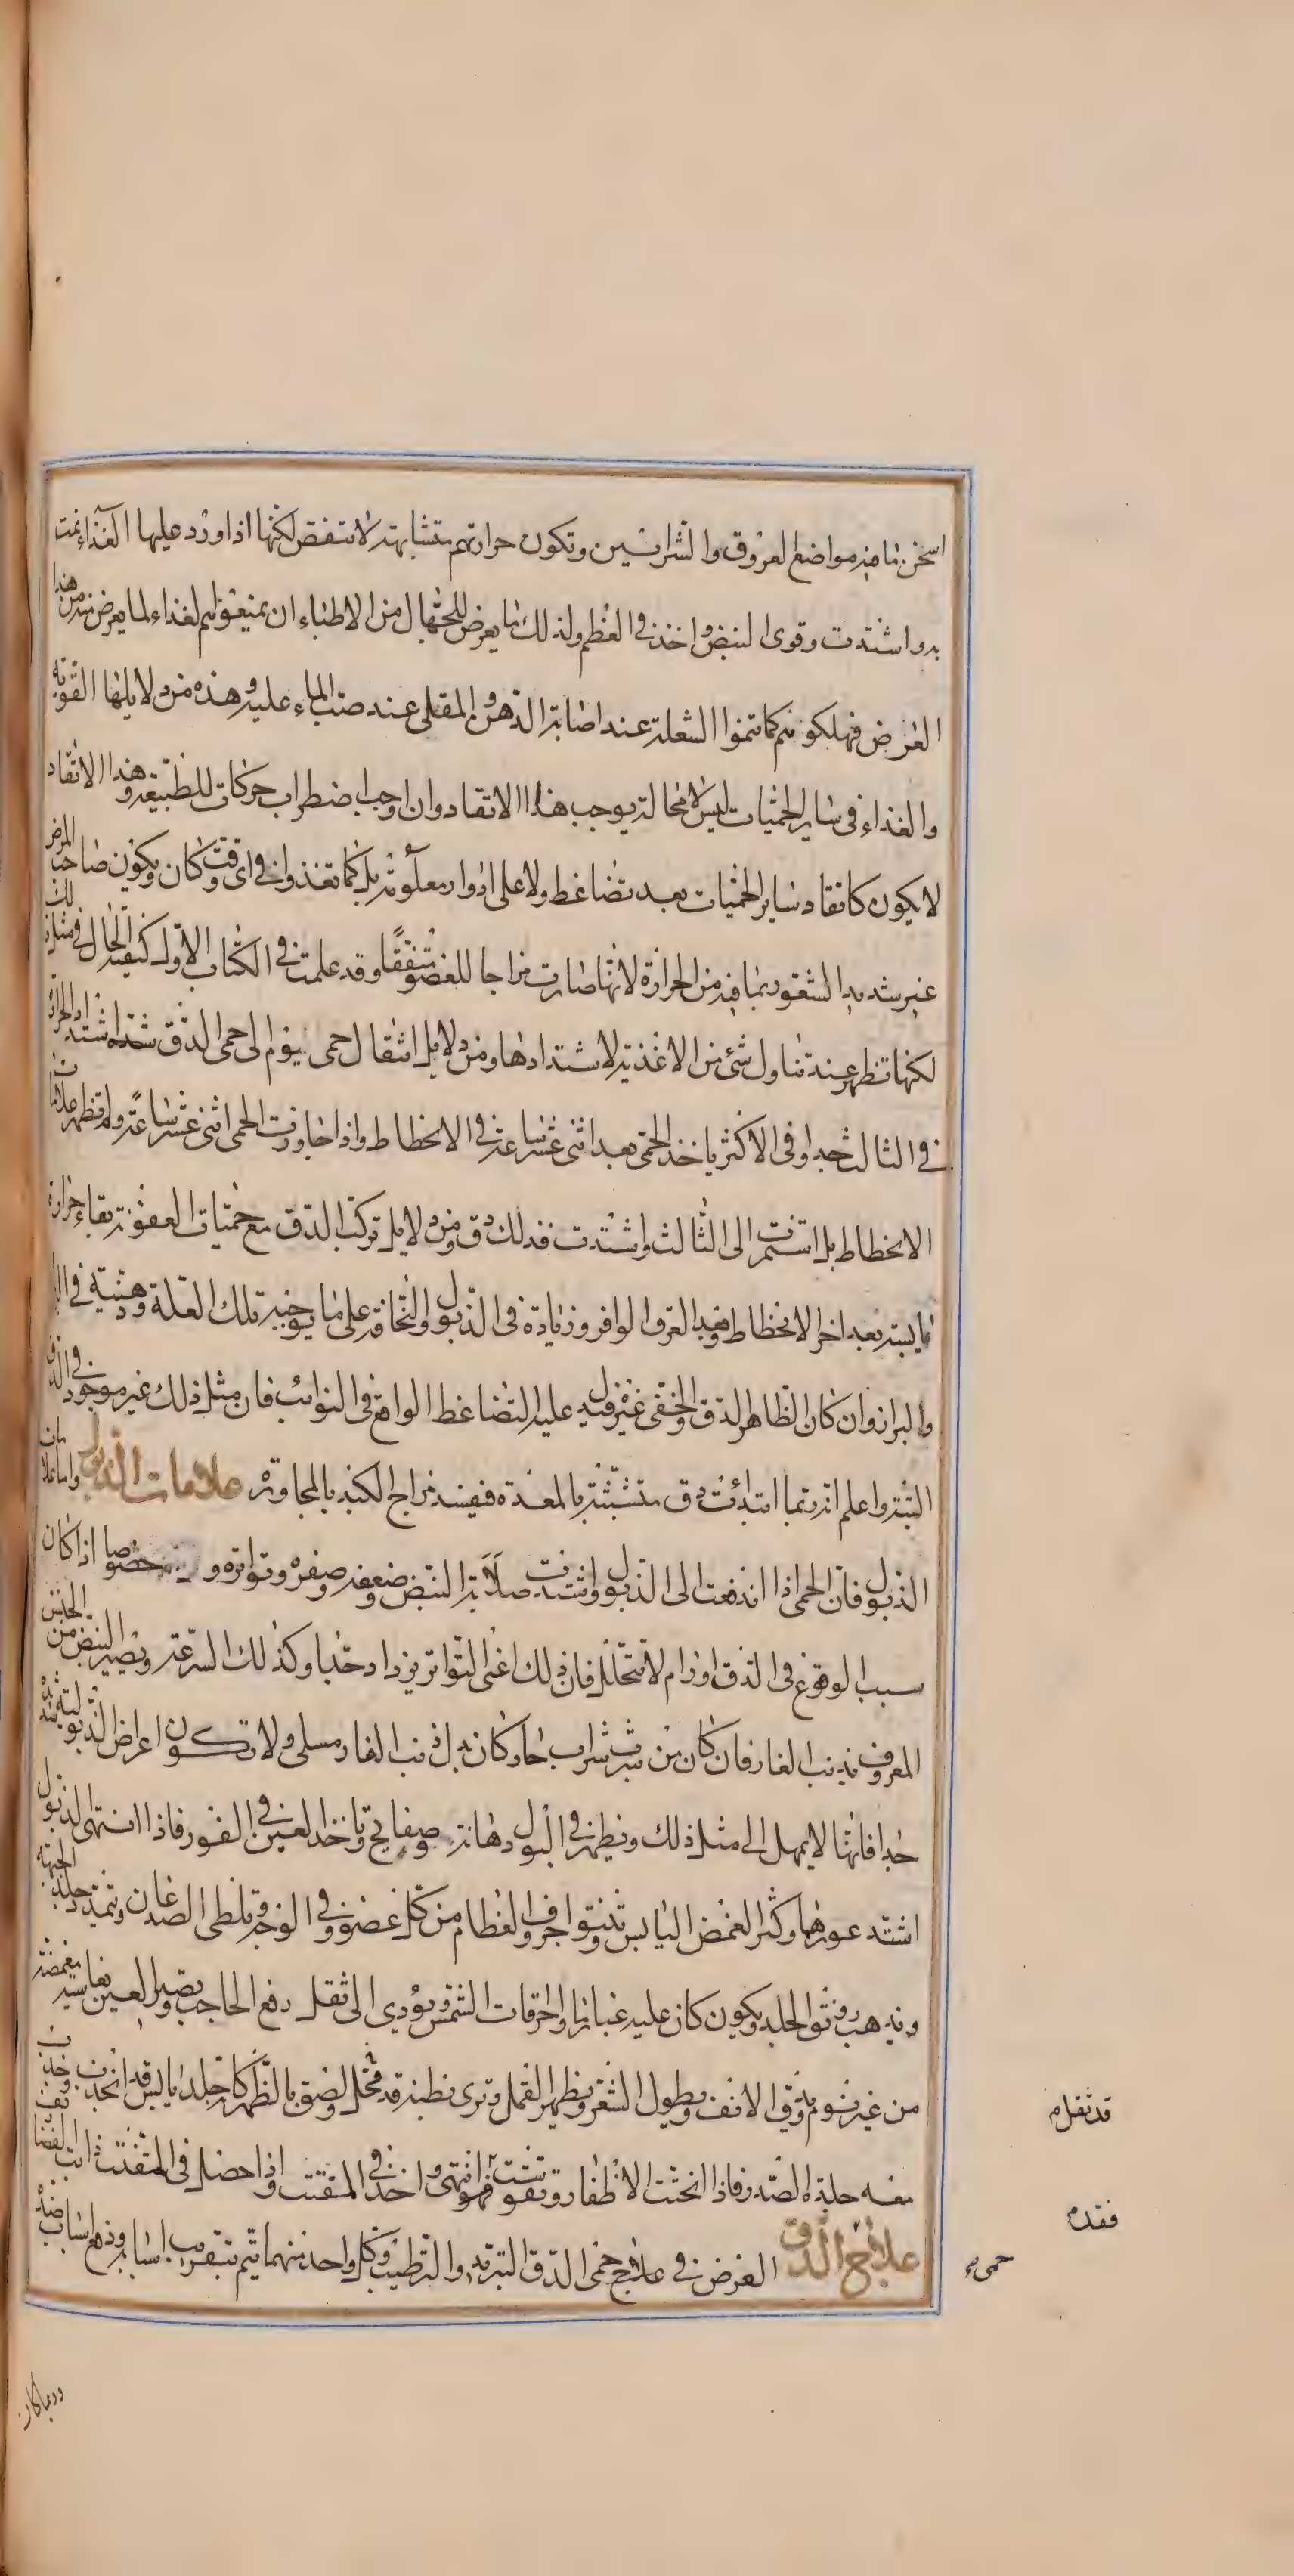 اسخن ما فيه مواضع العروق والشرايين وتكون حرارتهم متشابهة لا تنقص لكنها اذا ورد عليها الغذاء نمت
به واشتدت وقوى النبض واخذ في العظم ولذلك ما يعرض للجهال من الاطباء ان يمنعوهم الغذاء لما يعرض منه من هذا
العرض فيهلكونهم كما تنموا الشعلة عند اصابة الدهن والمقلى عند صب الماء عليه وهذه من دلايلها القوية
والغذاء في ساير الحميات ليس لا محالة يوجب هذا الاتقاد وان اوجب اضطراب حركات للطبيعة وهذا الاتقاد
لا يكون كاتقاد ساير الحميات بعد تضاغط ولا على ادوار معلومة بل كما تغذوا في اى وقت كان ويكون صاحب المرض
غير شديد الشعور بما فيه من الحرارة لانها صارت مزاجا للعضو متفقا وقد علمت في الكتاب الاول كيفية الحال في مثل ذلك
لكنها تظهر عند تناول شئ من الاغذية لاشتدادها ومن دلايل انتقال حمى يوم الى حمى الدق اشتداد الحرارة
في الثالث جدا وفي الاكثر ياخذ الحمى بعد اثنى عشر ساعة في الانحطاط واذا جاوزت الحمى اثنى عشر ساعة ولم تظهر علامات
الانحطاط بل استمرت الى الثالث واشتدت فذلك دق ومن دلايل تركب الدق مع حميات العفونة بقاء حرارة
يابسة بعد اخر الانحطاط وبعد العرق الوافر وزيادة في الذبول والنحافة على ما يوجبه تلك العلة ودهنية في البول
والبراز وان كان الظاهر الدق والخفى غيره فيدل عليه التضاغط الواقع في النوائب فان مثل ذلك غير موجود في الدق
البتة واعلم انه ربما ابتدأت دق متشبثة بالمعدة فيفسد مزاج الكبد بالمجاورة علامات الذبول واما علامات
الذبول فان الحمى اذا اندفعت الى الذبول واشتدت صلابة النبض وضعفه وصغره وتواتره وخصوصا اذا كان
سبب الوقوع في الدق اورام لا تتحلل فان ذلك اعنى التواتر يزداد جدا وكذلك السرعة ويصير النبض من الجنس
المعروف بذنب الفار فان كان من شرب شراب حار كان بدل ذنب الفار مسلى ولا تكون اعراض الذبولية شديدة
جدا فانها لا يمهل الى مثل ذلك ويظهر في البول دهانة وصفايح وتاخذ العين في الغور فاذا انتهى الذبول
اشتد غورهما وكثر الغمض اليابس وتنتوا جروف العظام من كل عضو وفي الوجه وتلطى الصدغان وتمتد جلد الجبهة
ويذهب رونق الجلد ويكون كان عليه غبارا ما واحراقات الشمس ويؤدى الى ثقل رفع الحاجب وتصير العين نعاسية مغمضة
من غير نوم ويدق الانف ويطول الشعر ويظهر القمل وترى بطنه قد قحل ولصق بالظهر كانه جلد يابس قد انجذب وجذب
معه جلدة الصدر فاذا انحنت الاظفار وتقوست فقد انتهى واخذ في المفتت واذا حصل في المفتت ذابت الغضاريف
علاج الدق الغرض في علاج حمى الدق التبريد والترطيب وكل واحد منهما يتم بتقريب اسبابه ودفع اسباب ضده
قد ثقل م
فقده
حمى
وربما كان